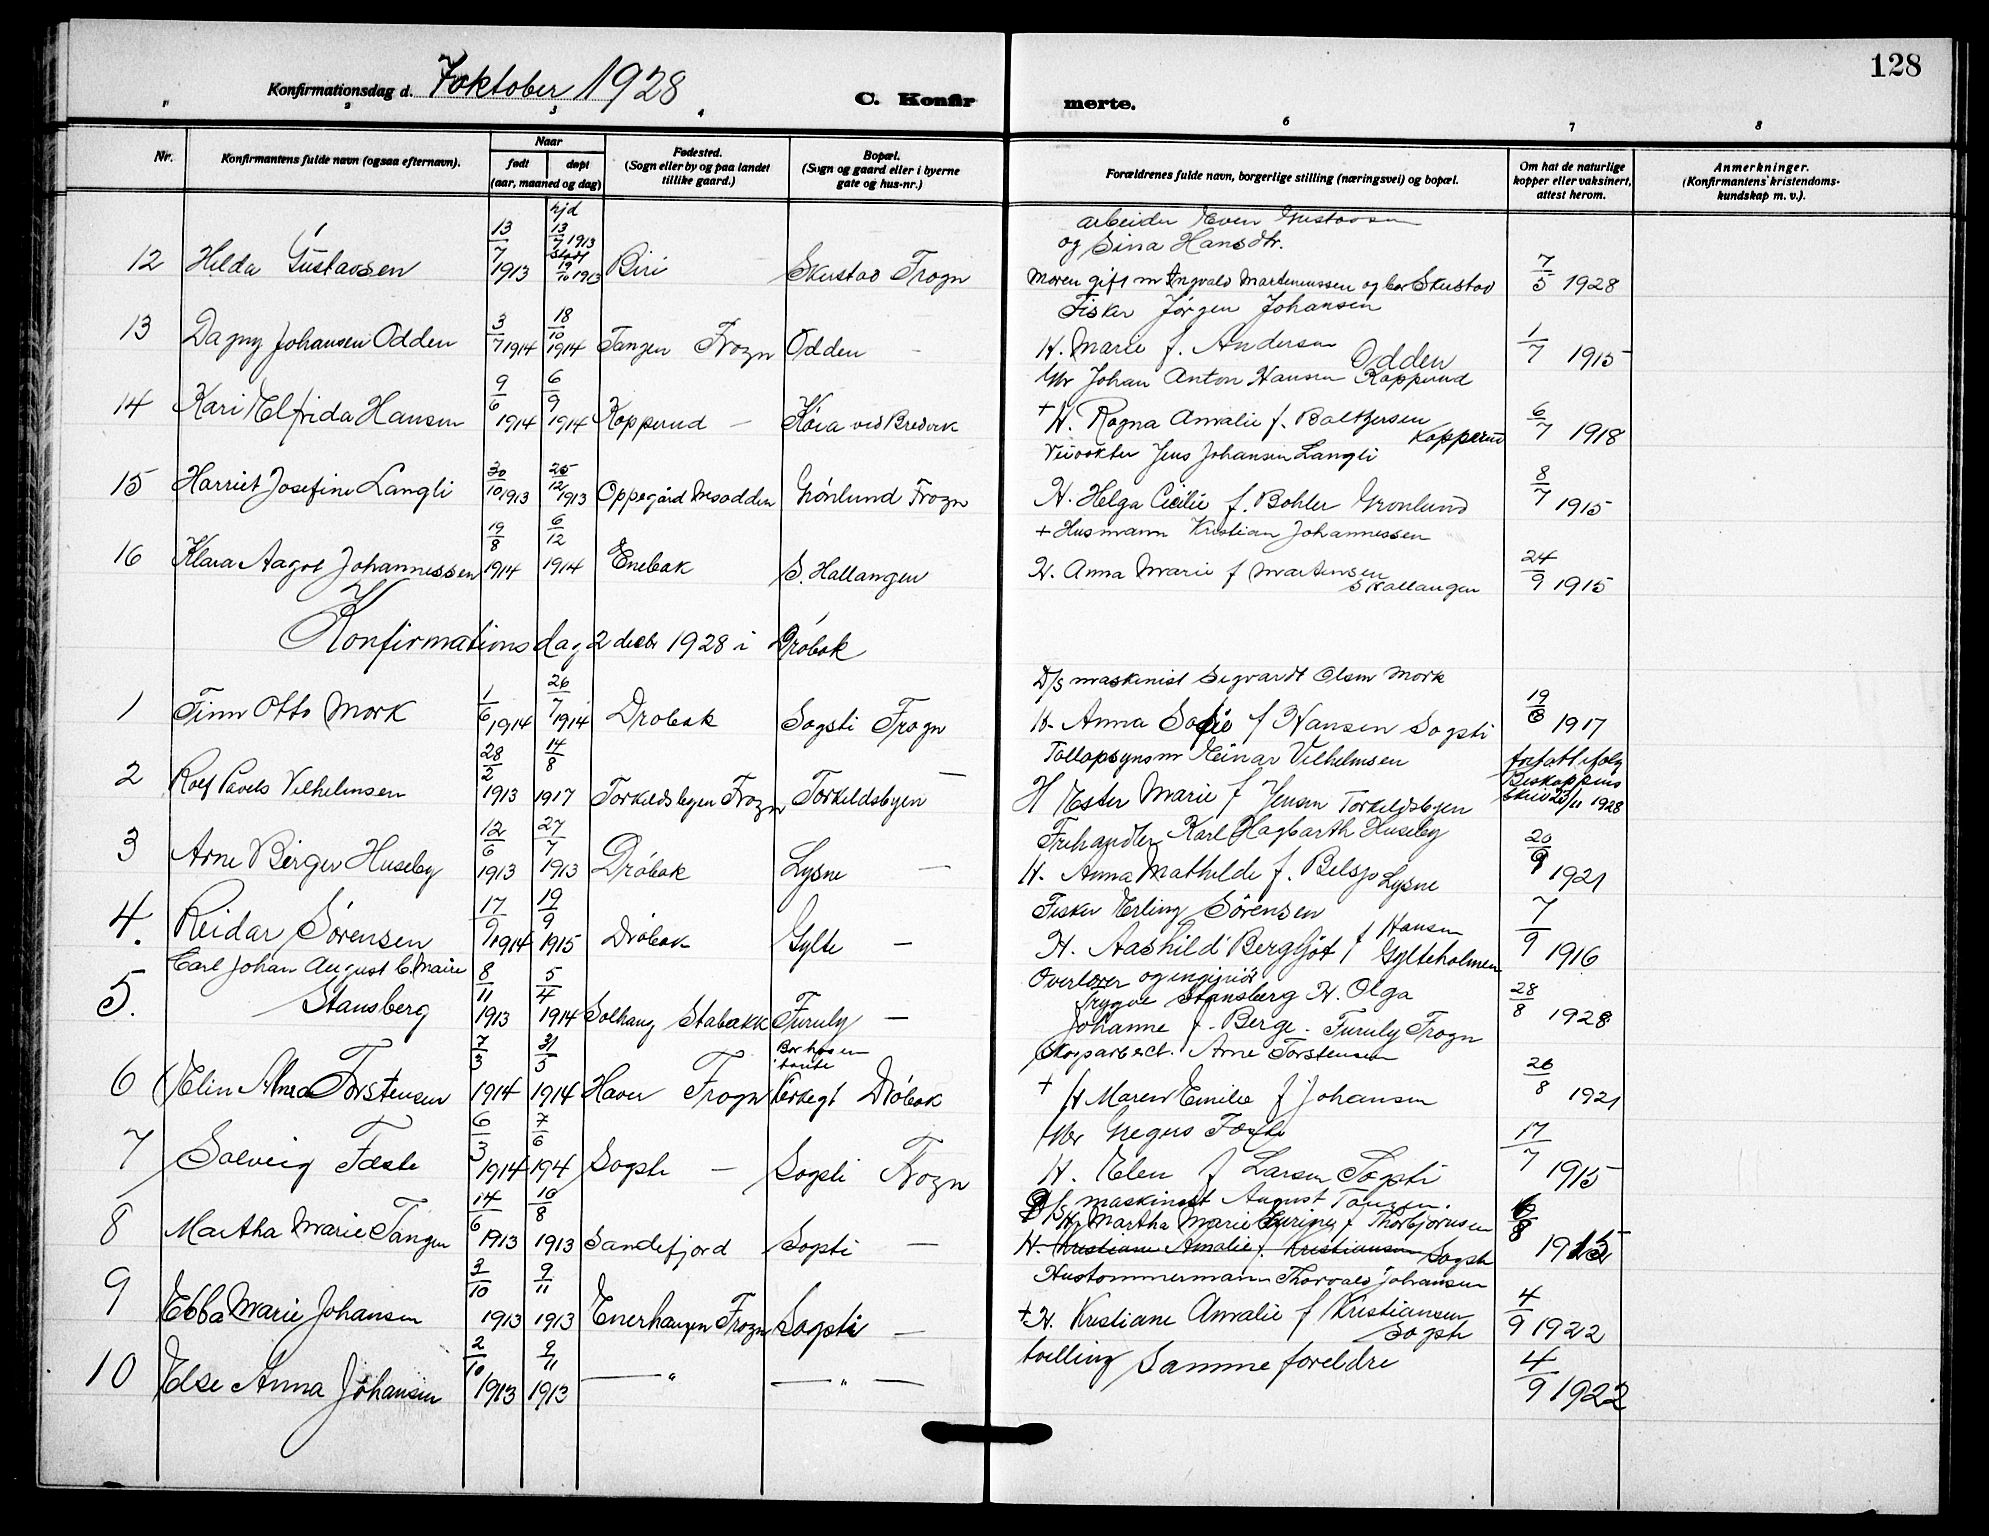 128
Konfirmationsdag d. 7 oktober 1928
C. Konfirmerte.
" 2 3 4 6 7 8
Nr. Konfirmantens fulde navn (ogsaa efternavn). Naar født døpt (aar, maaned og dag) Fødested. (Sogn eller by og paa landet tillike gaard.) Bopæl. (Sogn og gaard eller i byerne gate og hus-nr.) Forældrenes fulde navn, borgerlige stilling (næringsvei) og bopæl. Om hat de naturlige kopper eller vaksinert, attest herom. Anmerkninger. (Konfirmantens kristendoms-kundskap m. v.).
12 Hilda Gustavsen 13/7 1913 hjd 13/7 1913 stadf 19/10 1913 Biri Skustad Frogn
arbeider Even Gustavsen
og Sina Hansdtr.
Moren gift m Ingvald Martinussen og bor Skustad 7/5 1928
13 Dagny Johansen Odden 3/7 1914 18/10 1914 Tangen Frogn Odden –
Fisker Jørgen Johansen
H. Marie f. Andersen Odden 1/7 1915
14 Kari Elfrida Hansen 9/6 1914 6/9 1914 Kopperud – Køia ved Bredvik
Gbr Johan Anton Hansen Kopperud
+ H. Ragna Amalie f. Baltzersen Kopperud 6/7 1918
15 Harriet Josefine Langli 30/10 1913 25/12 1913 Oppegård Nesodden Grønlund Frogn
Veivokter Jens Johansen Langli
H. Helga Cicilie f. Bohler Grønlund 8/7 1915
16 Klara Aagot Johannessen 19/8 1914 6/12 1914 Enebak S. Hallangen
+ Husmann Kristian Johannessen
H. Anna Marie f Martinsen S Hallangen 24/9 1915
Konfirmationsdag 2 decbr 1928 i Drøbak
1 Finn Otto Mork 1/6 1914 26/7 1914 Drøbak Sogsti Frogn
D/S maskinist Sigvardt Olsen Mork
H. Anna Sofie f Hansen Sogsti 19/8 1917
2 Rolf Pavels Vilhelmsen 28/2 1913 14/8 1917 Torkildsbyen Frogn Torkildsbyen –
Tollopsynsm Einar Vilhelmsen
H Ester Marie f Jensen Torkildsbyen
Biskoppens skriv 23/11 1928
3 Arne Birger Huseby 12/6 1913 27/7 1913 Drøbak Lysne –
Frihandler Karl Hagbarth Huseby
H. Anna Mathilde f. Belsjø Lysne 20/9 1921
4. Reidar Sørensen 17/9 1914 19/9 1915 Drøbak Gylte –
Fisker Erling Sørensen
H. Aashild Bergljot f Hansen Gylteholmen 7/9 1916
5. Carl Johan August C. Maire Stansberg 8/11 1913 5/4 1914 Solhaug Stabækk Furuly –
Overlærer og ingeniør
Trygve Stansberg H. Olga
Johanne f. Berge. Furuly Frogn 28/8 1928
6 Elin Alma Torstensen 7/3 1914 31/5 1914 Haver Frogn Bor hos en tante Kirkegt Drøbak
Skogsarbeid. Arne Torstensen
+ H Maren Emilie f Johansen 26/8 1921
7 Solveig Fæste 6/3 1914 7/6 194 Sogsti – Sogsti Frogn
Gbr Gregers Fæste
H. Elen f Larsen Sogsti 17/7 1915
8 Martha Marie Tangen 14/6 1913 10/8 1913 Sandefjord Sogsti –
D/S maskinist August Tangen.
H. Martha Marie f Thorbjørnsen
H. Kristiane Amalie f. Kristiansen Sogsti 6/8 1915
9 Ebba Marie Johansen 2/10 1913 9/11 1913 Enerhaugen Frogn Sogsti –
Hustømmermann Thorvald Johansen
+ H. Kristiane Amalie f Kristiansen Sogsti 4/9 1922
10 Else Anna Johansen 2/10 1913 9/11 1913 — " — " —
tvilling Samme foreldre 4/9 1922